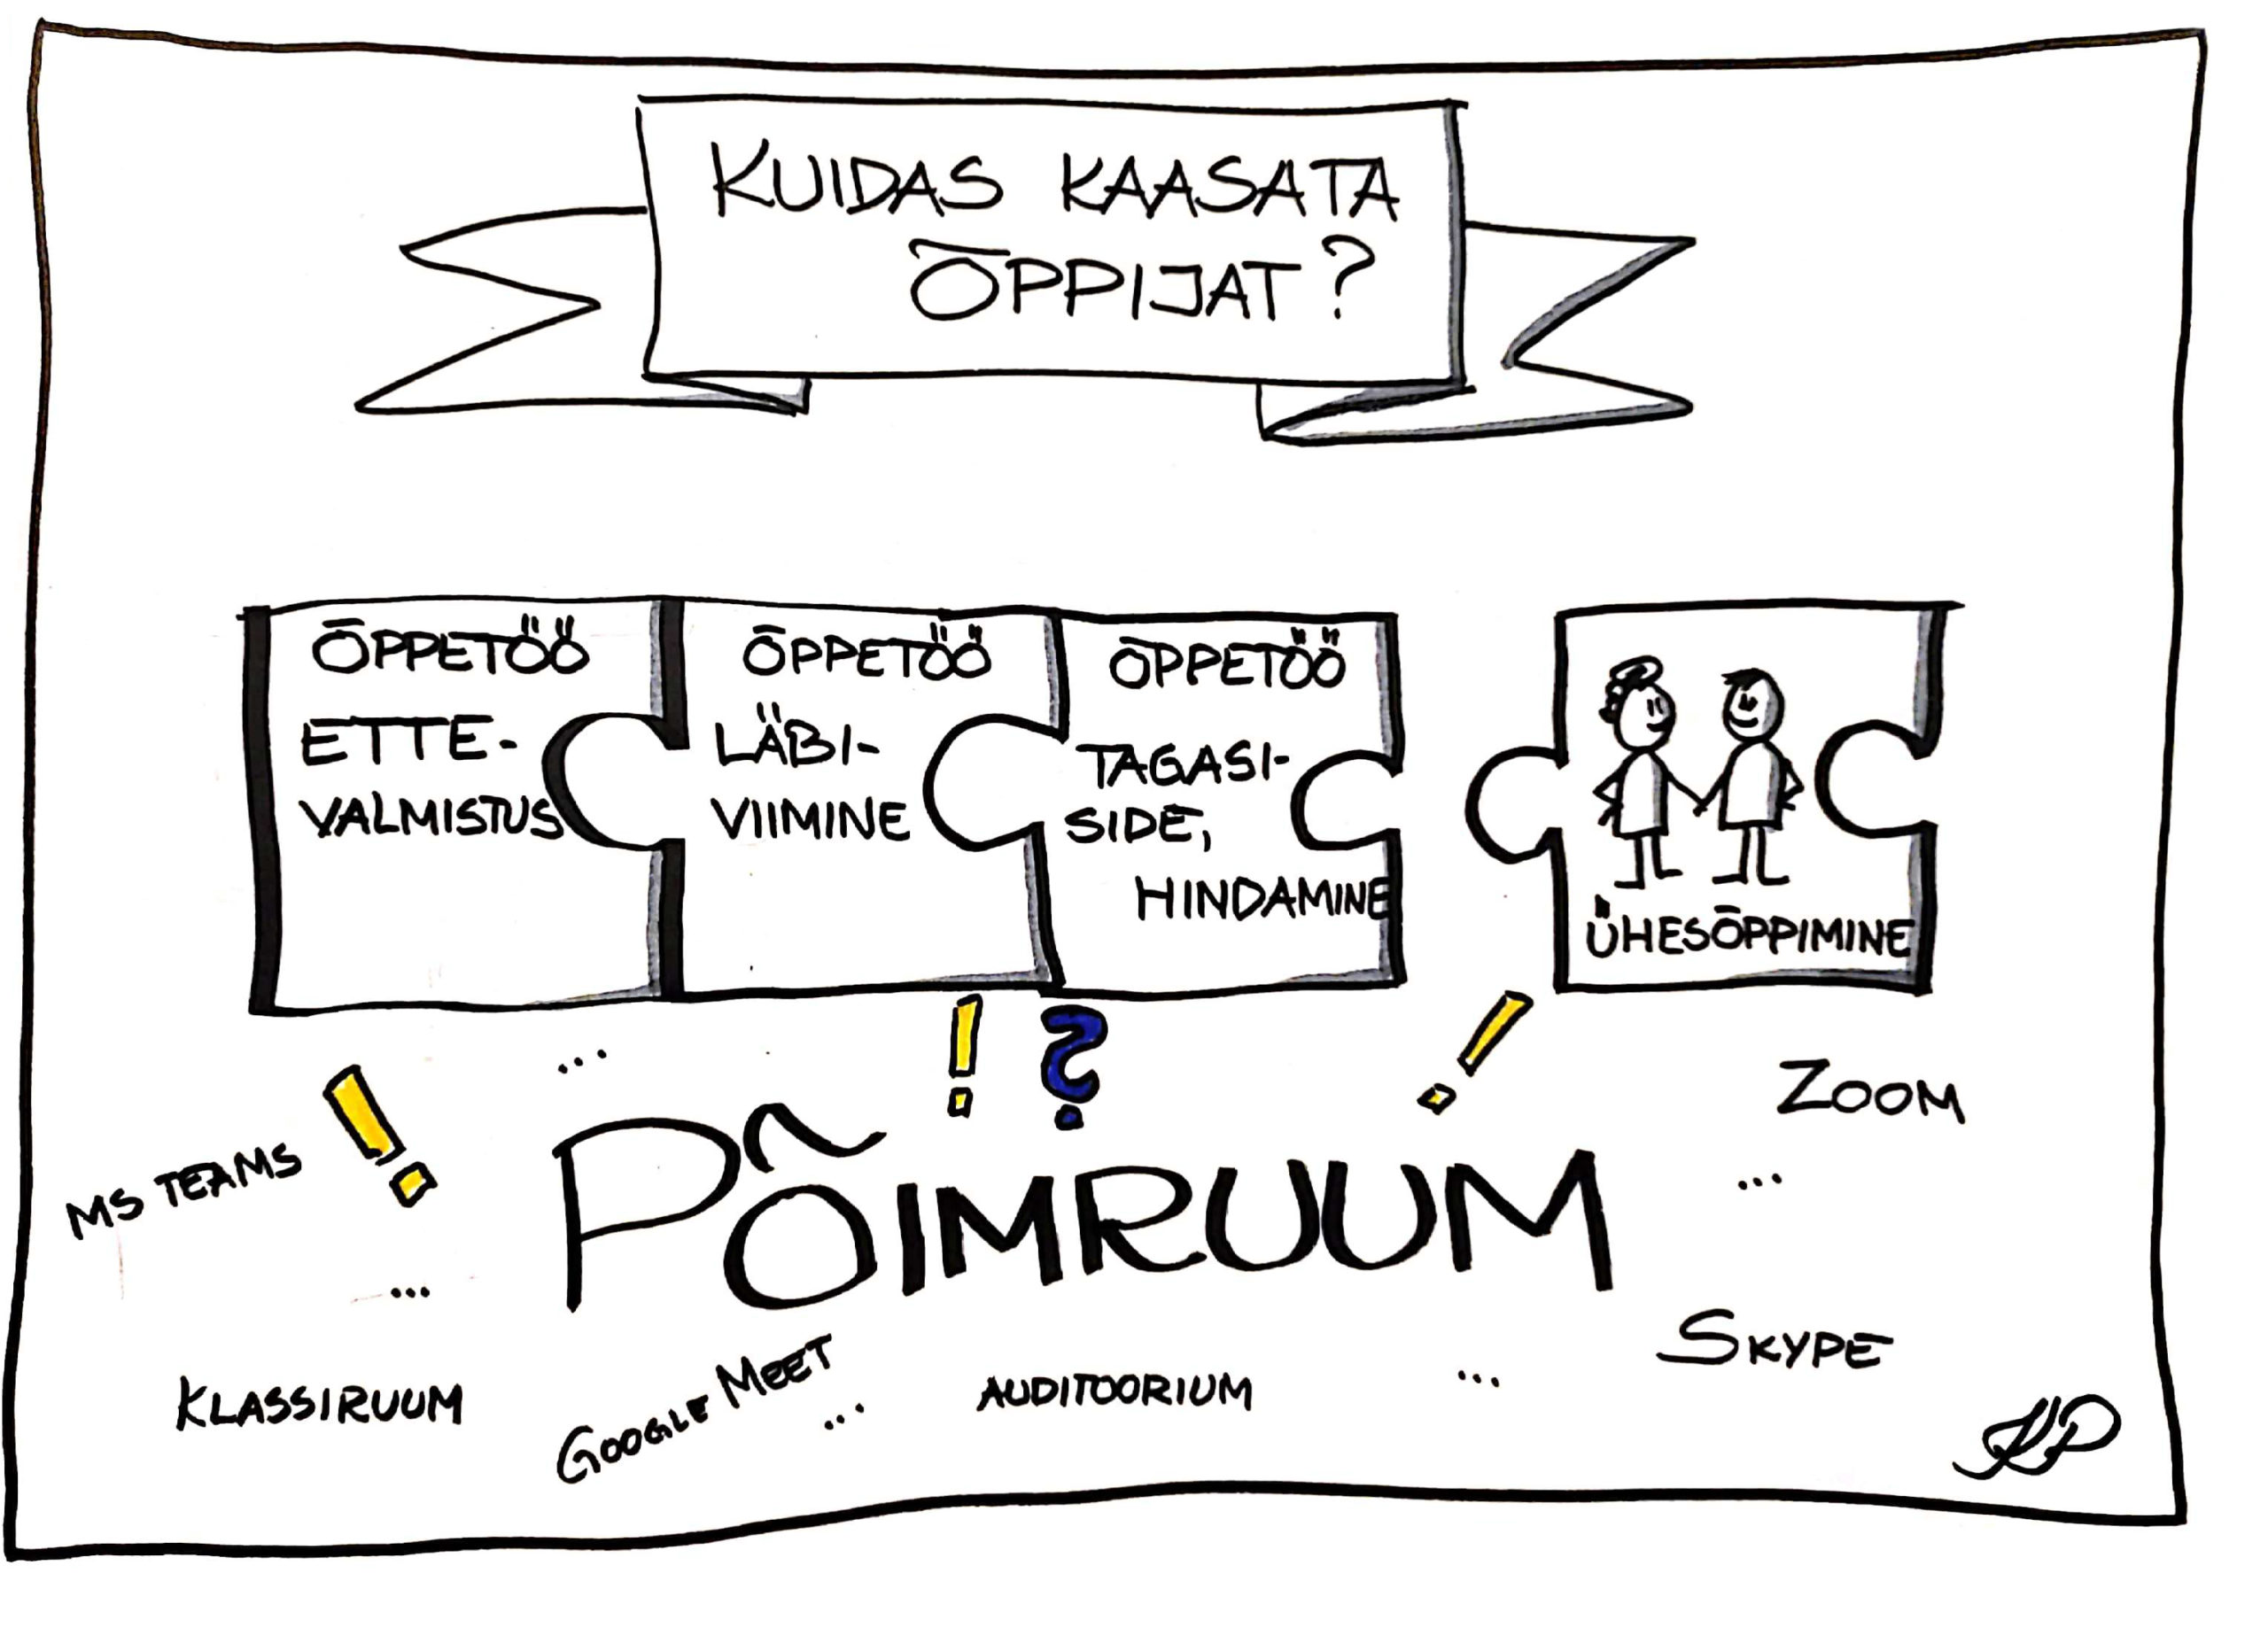 KUIDAS KAASATA
ÕPPIJAT?
ÕPPETÖÖ
ETTE-
VALMISTUS
ÕPPETÖÖ
LÄBI-
VIIMINE
ÕPPETÖÖ
TAGASI-
SIDE,
HINDAMINE
ÜHESÕPPIMINE
...
! ? !
ZOOM
MS TEAMS
!
PÕIMRUUM
...
...
SKYPE
KLASSIRUUM
GOOGLE MEET
...
AUDITOORIUM
...
KP